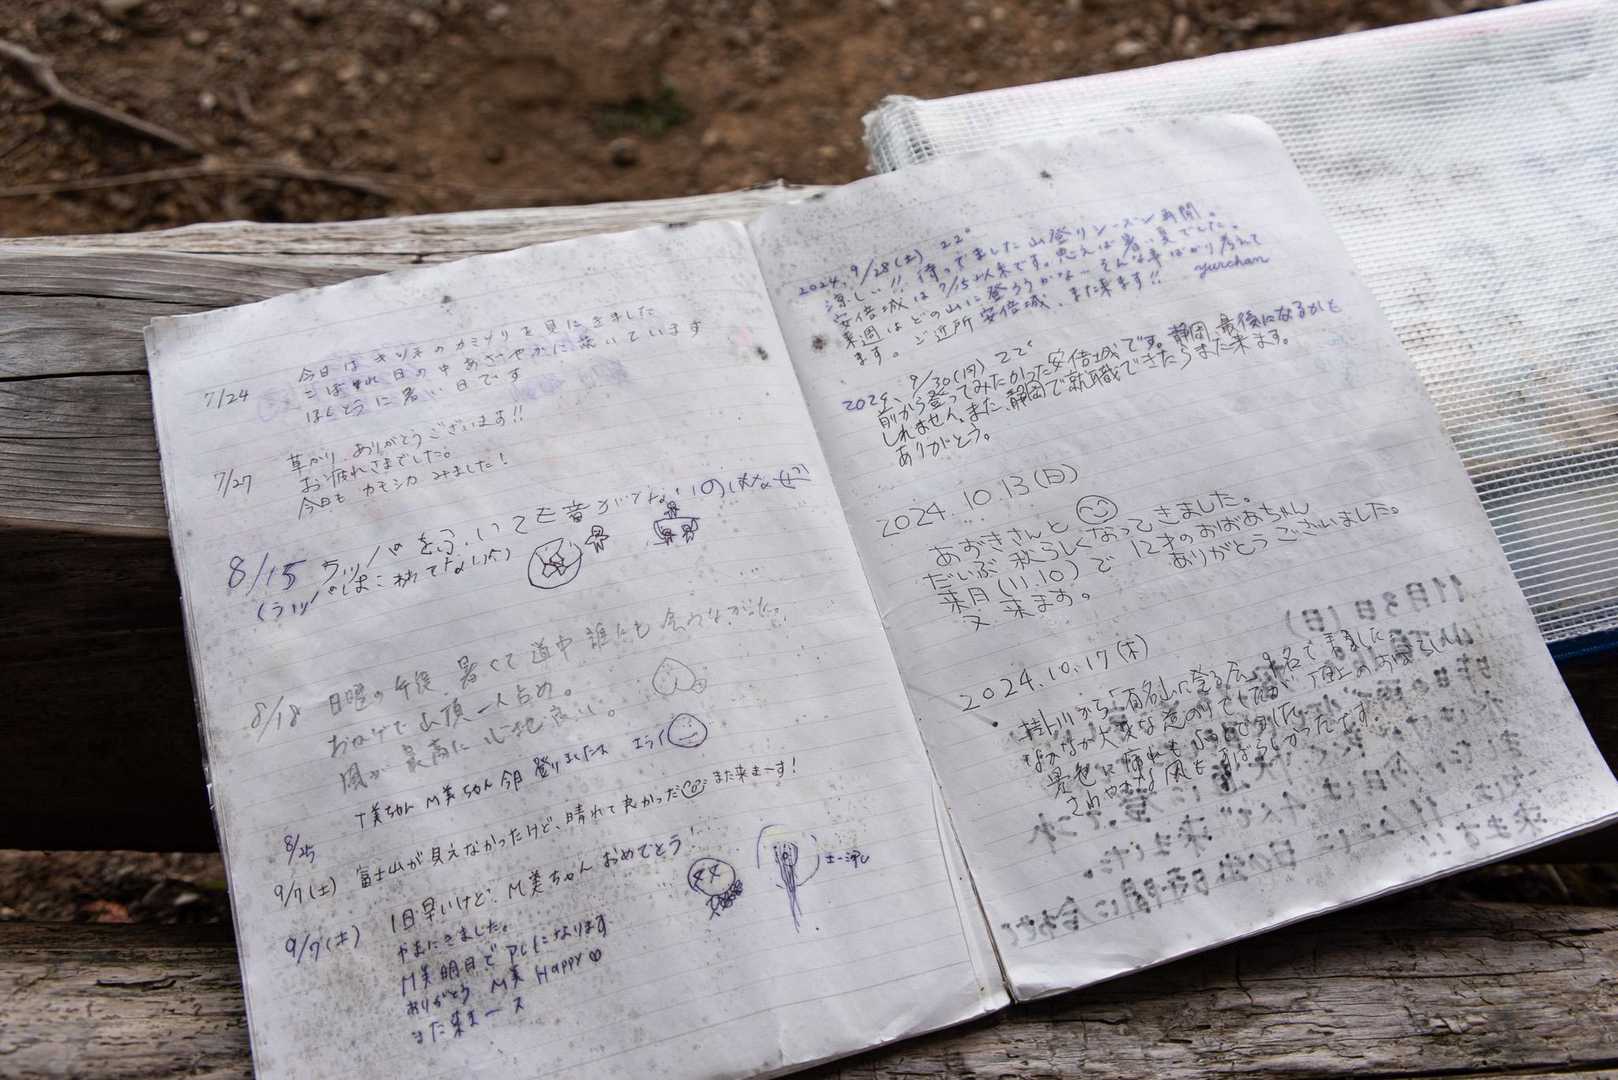 7/24
今日は キツネのカミソリを見にきました
こぼれ日の中あざやかに咲いています
ほんとうに暑い日です
7/27
草かり ありがとうございます!!
お疲れさまでした。
今日も カモシカ みました!
8/15 ラッパをふいても音がでない
(ラッパはこわれてない)
8/18
日曜の午後、暑くて道中誰にも会わなかった。
おかげで山頂一人占め。
風が最高に心地良い。
8/25
M美ちゃん今日登りましたね エライ
9/7(土) 富士山が見えなかったけど、晴れて良かった また来まーす!
9/7(土) 1日早いけど、M美ちゃん おめでとう!
やまにきました。
M美明日で
ありがとう M美 Happy♡
また来まース
2024. 9/28(土) 22°
涼しい!! 待ってました山登りシーズン再開。
安倍城は7/15以来です。思えば暑い夏でした。
来週はどの山に登ろうかな…そんな事ばかり考えて
ます。ご近所安倍城、また来ます!! yurchan
2024. 9/30(月) 22°
前から登ってみたかった安倍城です。静岡、最後になるかも
しれません。また、静岡で就職できたらまた来ます。
ありがとう。
2024.10.13(日)
あおきさんと
だいぶ秋らしくなってきました。
来月(11.10)で 12才のおばあちゃん
又来ます。 ありがとうございました。
2024.10.17(木)
掛川から「百名山に登る会」9名で来ました
なかなか大変な道のりでしたが 頂上のすばらしい
景色に疲れも
さわやかな風も すばらしかったです。